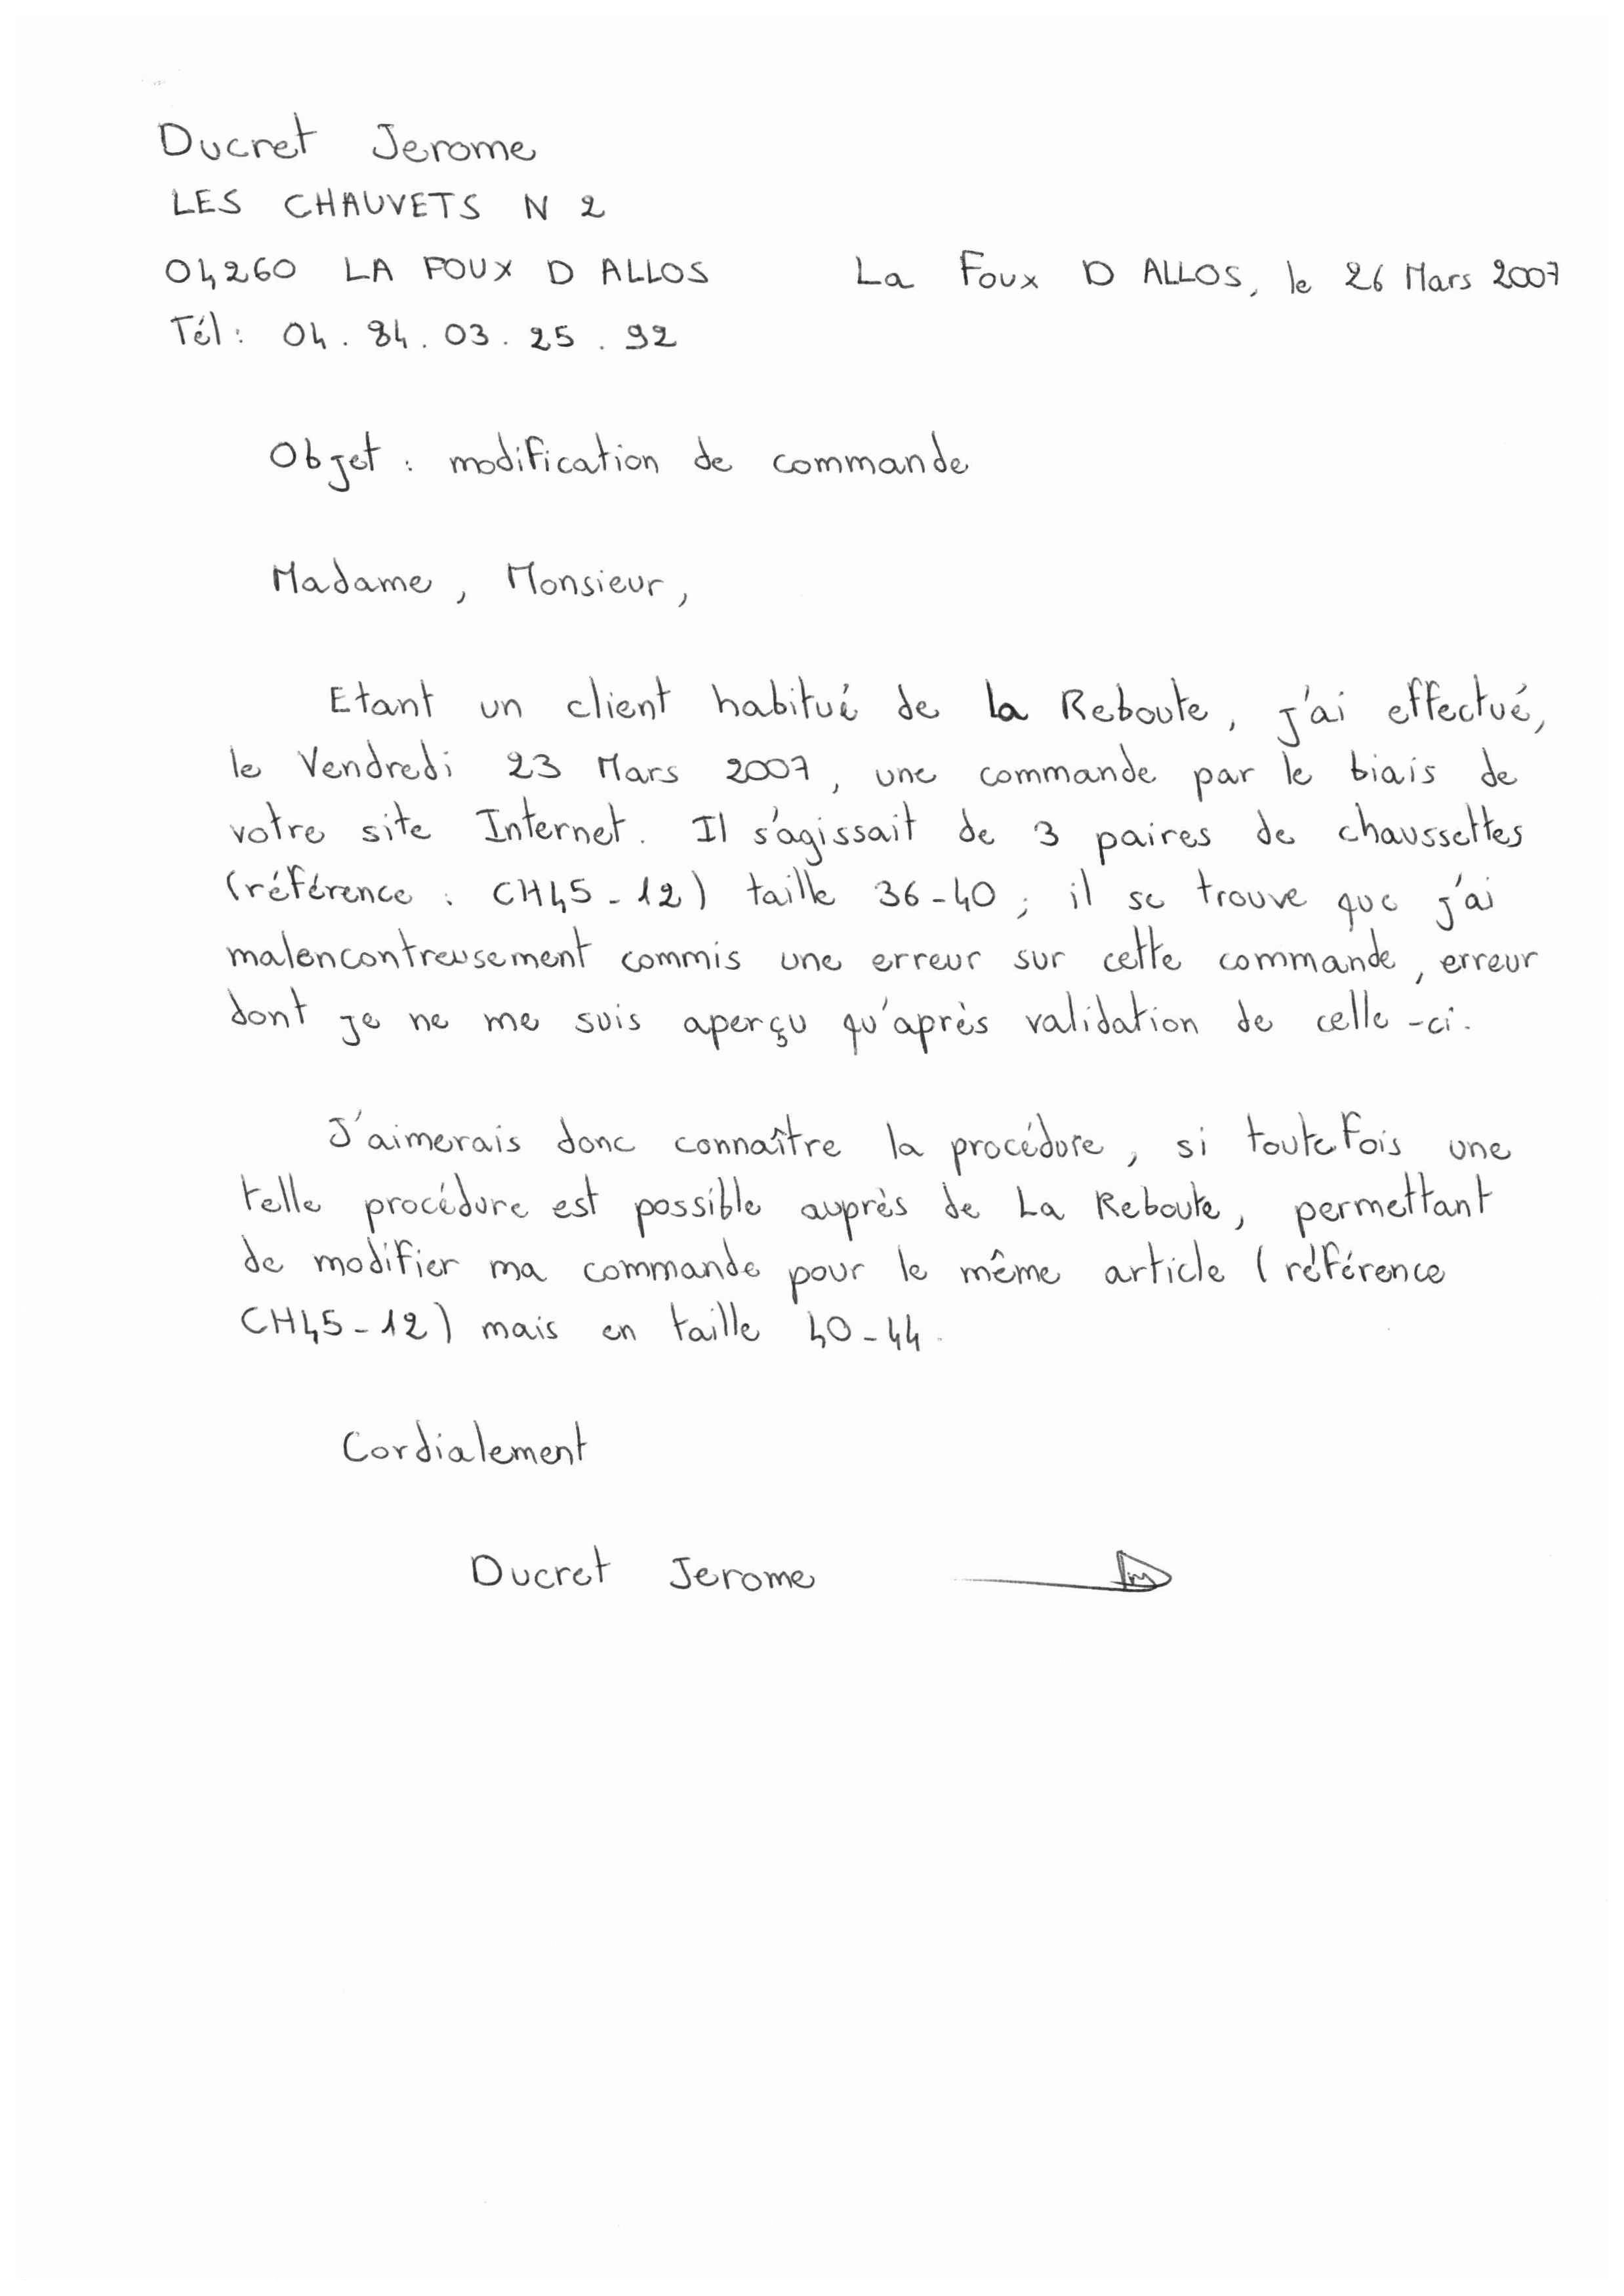 Ducret Jerome
LES CHAUVETS N 2
04260 LA FOUX D ALLOS La Foux D ALLOS, le 26 Mars 2007
Tél : 04.84.03.25.92
Objet : modification de commande
Madame, Monsieur,
Etant un client habitué de la Reboute, j'ai effectué,
le Vendredi 23 Mars 2007, une commande par le biais de
votre site Internet. Il s'agissait de 3 paires de chaussettes
(référence : CH45-12) taille 36-40 ; il se trouve que j'ai
malencontreusement commis une erreur sur cette commande, erreur
dont je ne me suis aperçu qu'après validation de celle-ci.
J'aimerais donc connaître la procédure, si toutefois une
telle procédure est possible auprès de La Reboute, permettant
de modifier ma commande pour le même article (référence
CH45-12) mais en taille 40-44.
Cordialement
Ducret Jerome